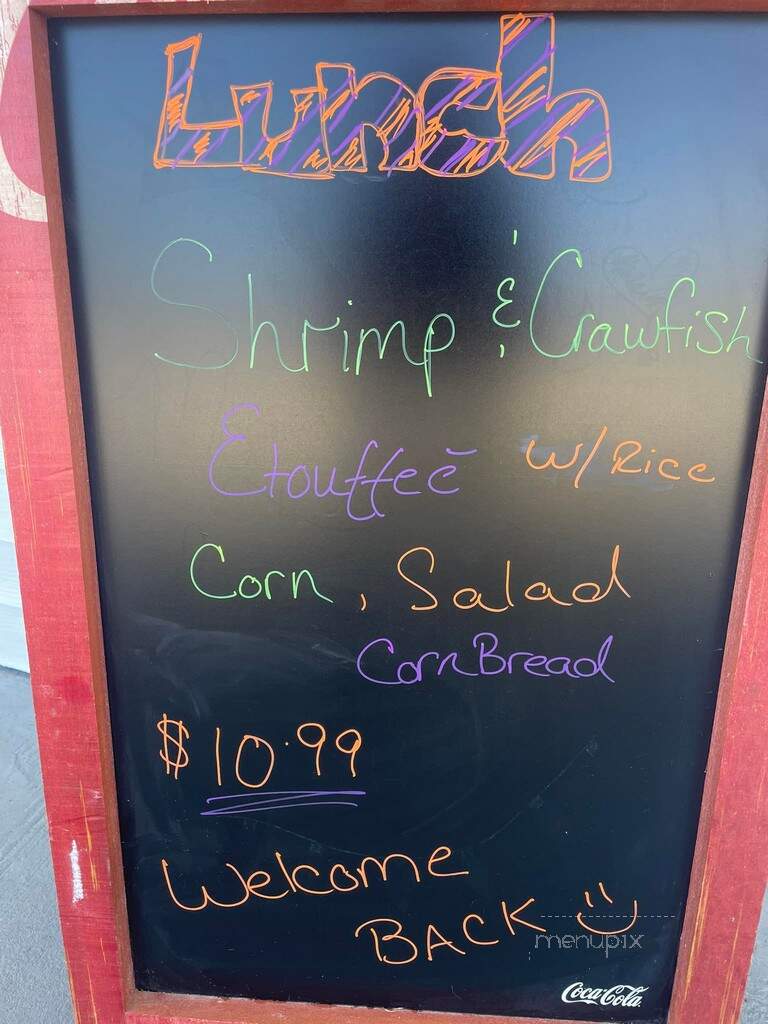 Lunch
Shrimp & Crawfish
Etouffeē w/ Rice
Corn, Salad
CornBread
$10.99
Welcome
BACK
menupix
Coca-Cola